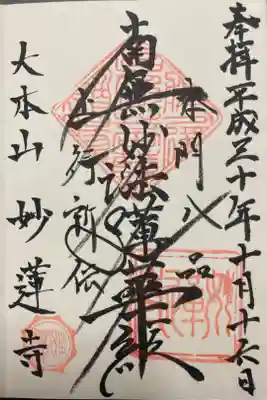 奉拝 平成三十年十月十六日
本門八品
南無妙法蓮華経
上行所伝
大本山 妙蓮寺